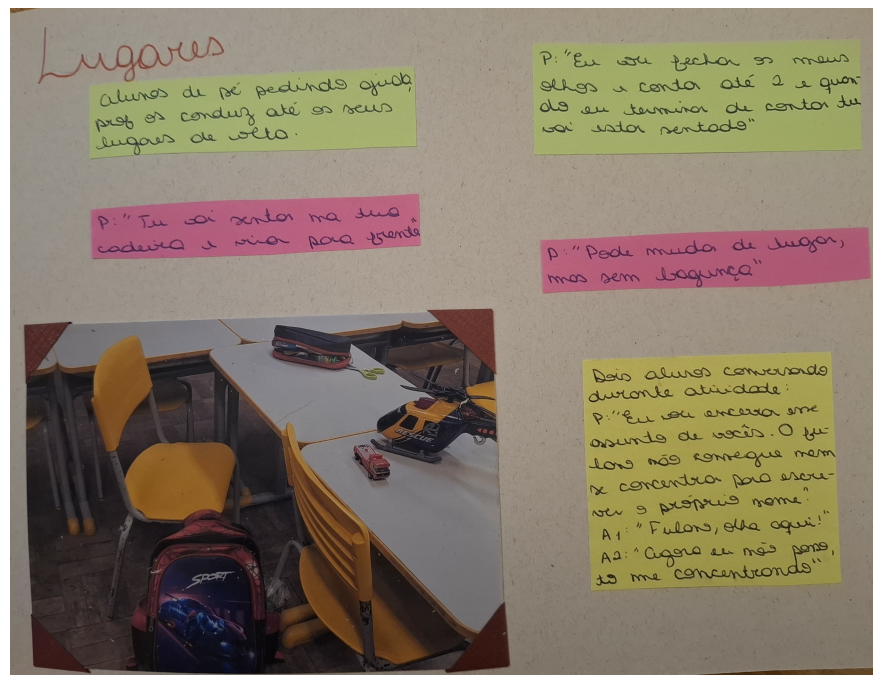 Lugares
Alunos de pé pedindo ajuda,
prof os conduz até os seus
lugares de volta.
P: "Eu vou fechar os meus
olhos e contar até 2 e quan-
do eu terminar de contar tu
vai estar sentado"
P: "Tu vai sentar na tua
cadeira e virar para frente"
P: "Pode mudar de lugar,
mas sem bagunça"
RESCUE
SPORT
Dois alunos conversando
durante atividade:
P: "Eu vou encerrar esse
assunto de vocês. O fu-
lano não consegue nem
se concentrar para escre-
ver o próprio nome".
A1: "Fulano, olha aqui!"
A2: "Agora eu não posso,
tô me concentrando"